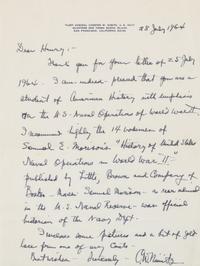 FLEET ADMIRAL CHESTER W. NIMITZ, U.S. NAVY
QUARTERS ONE YERBA BUENA ISLAND
SAN FRANCISCO, CALIFORNIA
28 July 1964
Dear Henry:—
Thank you for your letter of 25 July
1964. I am indeed proud that you are a
student of American History with emphasis
on the U.S. Naval Operations of World War II.
I recommend highly the 14 volumes of
Samuel E. Morison's "History of United States
Naval Operations in World War II"—
published by Little, Brown and Company of
Boston— Samuel Morison— a rear admiral
in the U.S. Naval Reserve— was official
historian of the Navy Dept.
I enclose some pictures and a bit of gold
lace from one of my Coats—
Best wishes— Sincerely— CWNimitz